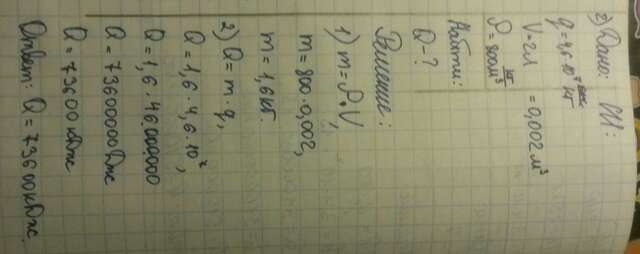 2) Дано: СИ:
q=4,6·10⁷ Дж/кг
V=2л =0,002м³
ρ=800 кг/м³
Найти:
Q-?
Решение:
1) m=ρ·V,
m=800·0,002,
m=1,6кг.
2) Q=m·q,
Q=1,6·4,6·10⁷,
Q=1,6·46000000
Q=73600000Дж
Q=73600кДж
Ответ: Q=73600кДж.